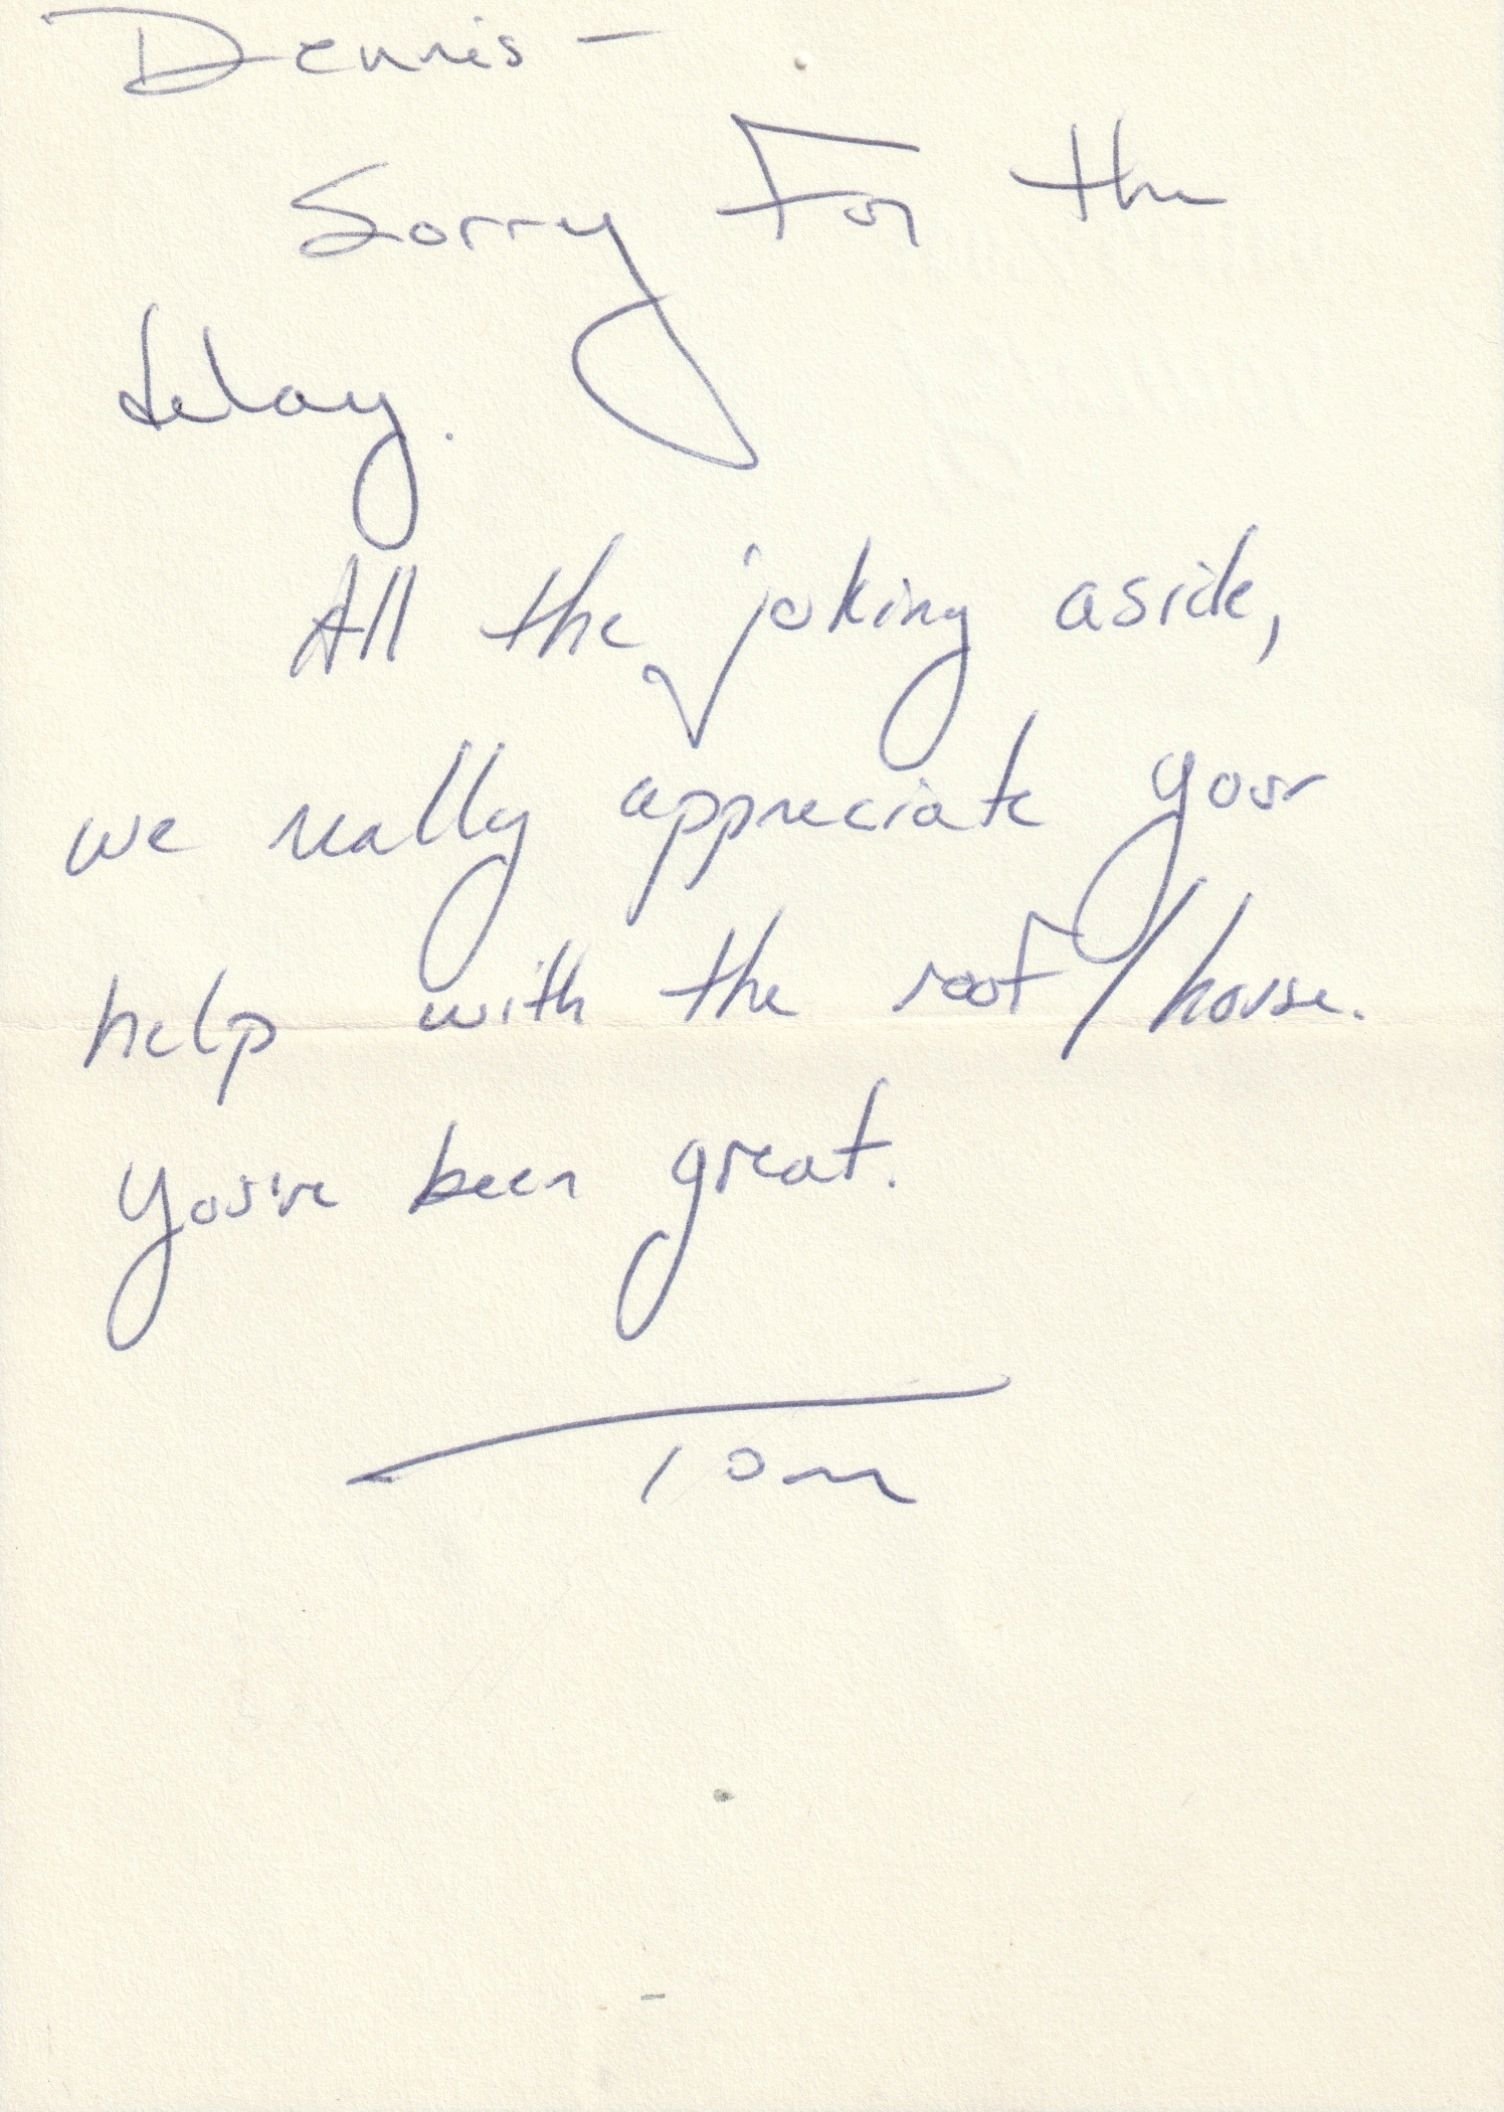 Dennis -
Sorry For the
delay.
All the joking aside,
we really appreciate your
help with the roof/house.
You've been great.
Tom